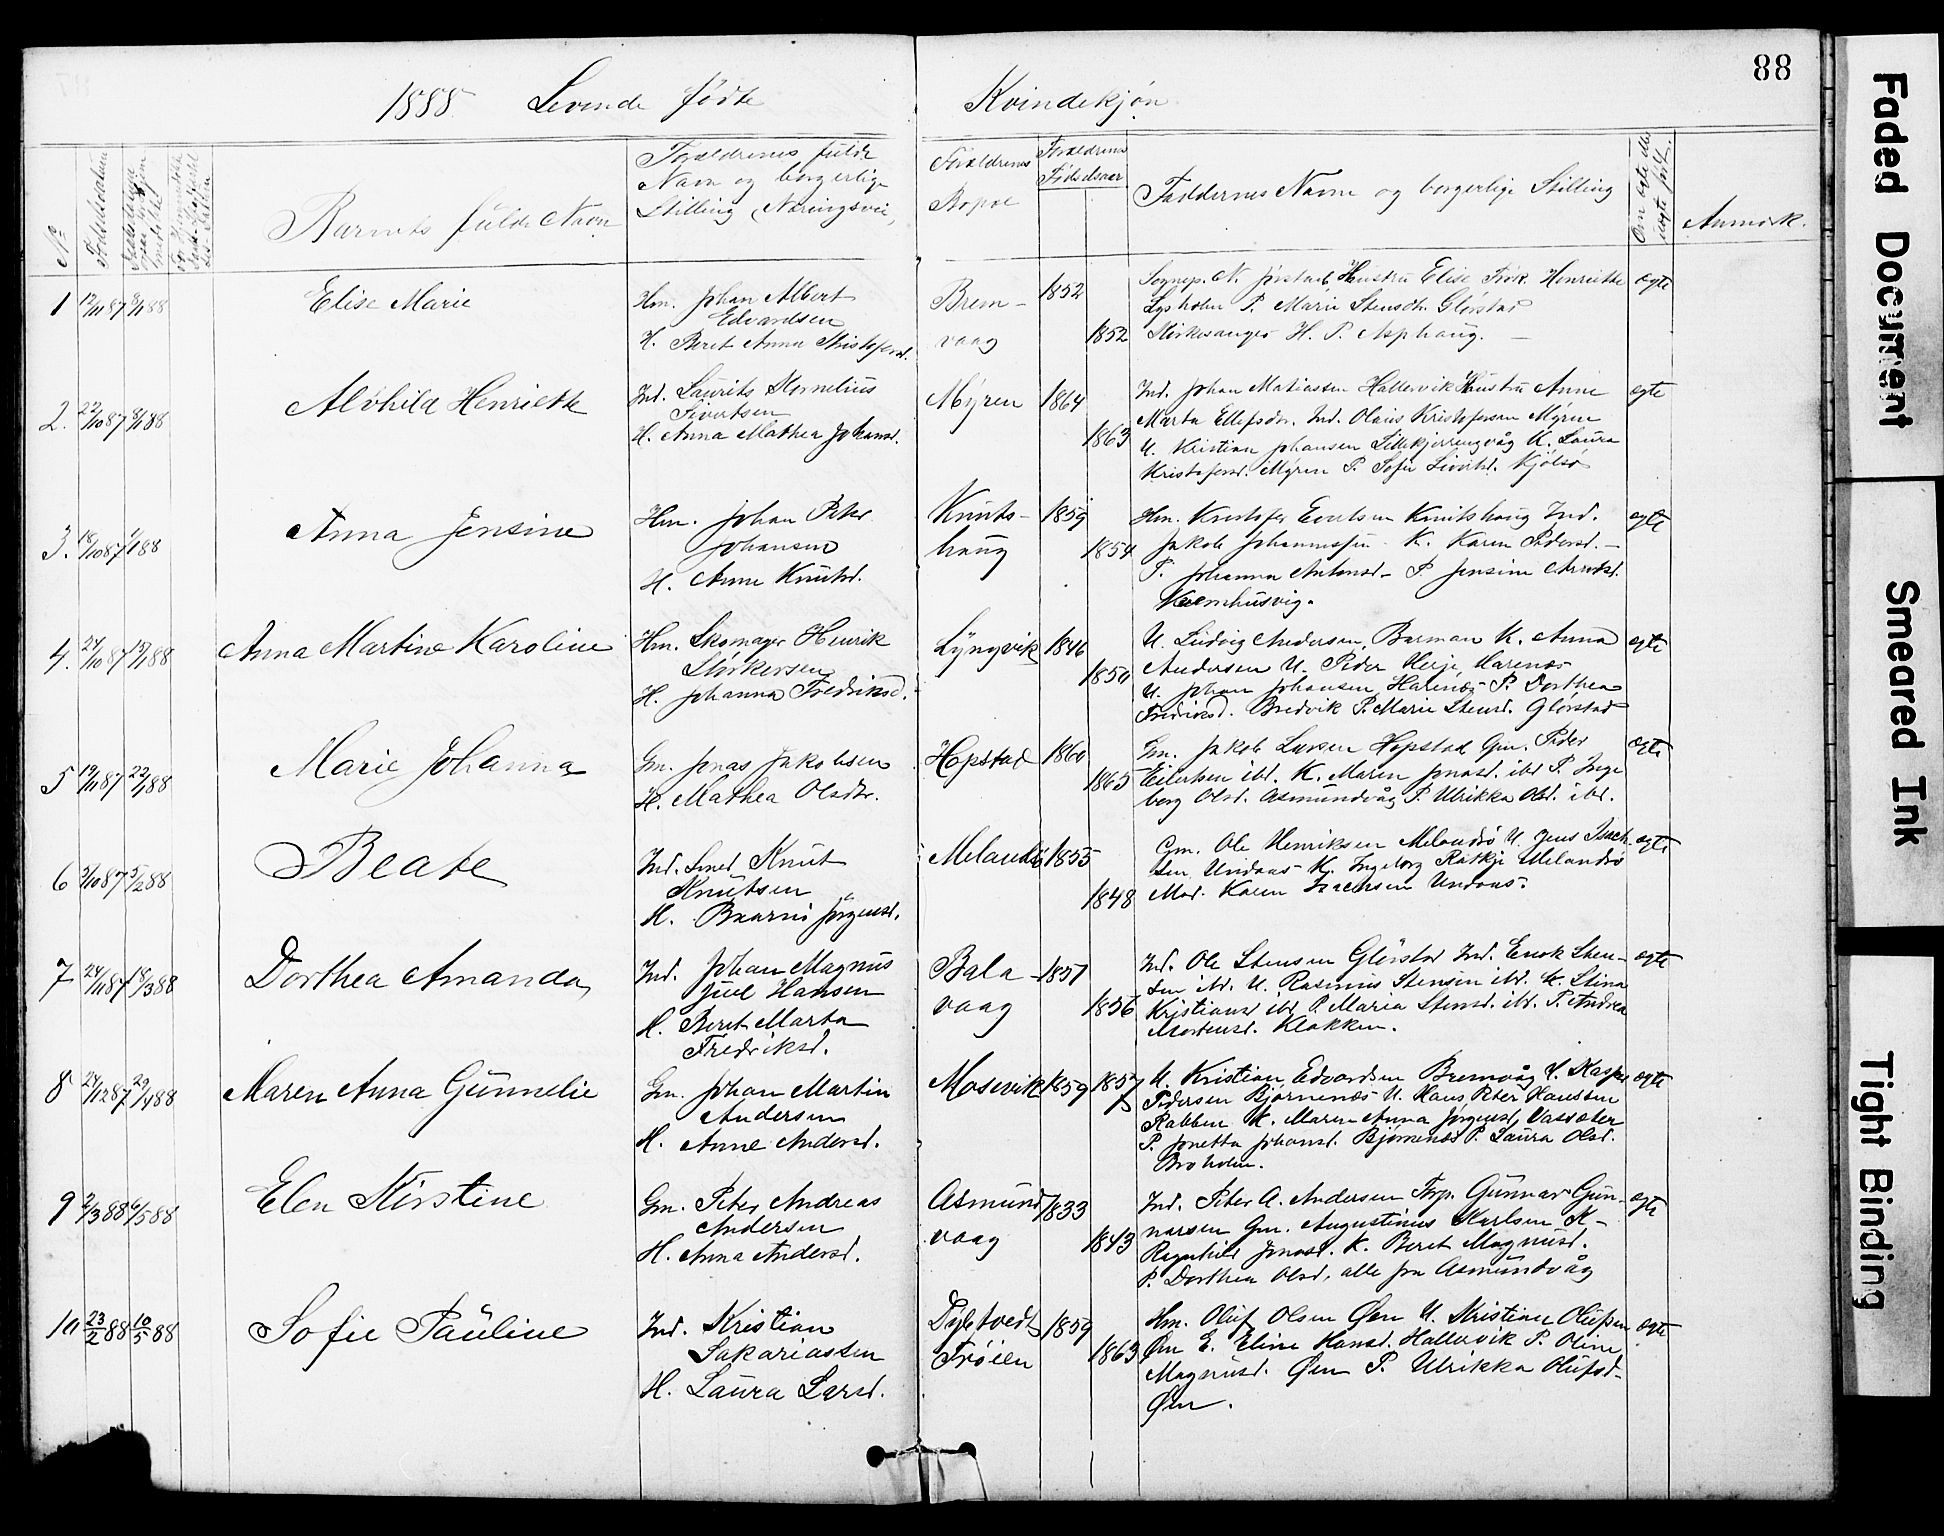 88
1888 Levende fødte Kvindekjøn
No
Fødselsdatum
Barnets fulde Navn
Forældrenes fulde
Navn og borgerlige
Stilling (Næringsvei)
Forældrenes
Bopæl
Forældrenes
Fødselsaar
Faddernes Navne og borgerlige Stilling
Anmærk.
1 12/11 87 8/1 88 Elise Marie
Hm. Johan Albert
Edvardsen
H. Beret Anna Kristofersd.
Brem-
vaag
1852
1852
Sognep. N. Jørstad, Hustru Elise, Frøk. Henriette
Lysholm P. Marie Stensdtr. Glørstad
Kirkesanger H. P. Asphaug. —
ægte
2. 22/10 87 8/1 88 Alvhild Henriette
Ind. Laurits Kornelius
Sivertsen
H. Anna Mathea Johansd.
Myren
1864
1863
Ind. Johan Matiassen Hallervik Hustru Anne
Marta Ellefsdtr. Ind. Olaus Kristofersen Myren
U. Kristian Johansen Lillekjerringvåg K. Laura
Kristofersd. Myren P. Sofie Sivertsd. Kjølsø
ægte
3. 18/10 87 1/1 88 Anna Jensine
Hm. Johan Peter
Johansen
H. Anne Knutsd.
Knuts-
haug
1859
1854
Hm. Kristofer Evertsen Knutshaug Ind.
Jakob Johannessen K. Karen Pedersd. —
P. Johanna Antonsd — P. Jensine Arntsd.
Kvernhusvig.
ægte
4. 24/10 87 19/1 88 Anna Martine Karoline
Hm. Skomager Henrik
Størkersen
H. Johanna Fredriksd.
Lyngvik
1846
1850
U. Ludvig Andersen, Barman K. Anna
Andersen U. Peder Herje, Harenæs
U. Johan Johansen, Harenæs P. Dorthea
Fredriksd. Bredvik P. Marie Stensd. Glørstad
ægte
5 19/11 87 22/1 88 Marie Johanna
Gm. Jonas Jakobsen
H. Mathea Olsdtr.
Hopstad
1860
1865
Gm. Jakob Larsen Hopstad Gm. Peder
Eilertsen ibd. K. Maren Jonasd. ibd P. Inge
borg Olsd. Asmundvåg P. Ulrikka Olsd. ibd.
ægte
6 3/10 87 5/2 88 Beate
Ind. Smed Knut
Knutsen
H. Beret Jørgensd.
Melandsø
1855
1848
Gm. Ole Henriksen Melandsø U. Jens Isach
sen Undaas K. Ingeborg Ratkje Melandsø
Mad. Karen Isachsen Undaas.
ægte
7 24/11 87 18/3 88 Dorthea Amanda
Ind. Johan Magnus
Juel Hansen
H. Beret Marta
Fredriksd.
Bala-
vaag
1857
1856
Ind. Ole Stensen Glørstad Ind. Enok Sten-
sen ibd. U. Rasmus Stensen ibd. K. Stina
Kristiansd ibd P. Maria Stensd. ibd. P. Andrea
Mortensd. Klakken.
ægte
8 24/12 87 29/4 88 Maren Anna Gunnelie
Gm. Johan Martin
Andersen
H. Anne Andersd.
Mosevik
1859
1857
U. Kristian Edvardsen Bremvåg U. Kasper
Pedersen Bjørnenæs U. Hans Peter Hanssen
Rabben K. Maren Anna Jørgensd. Vassæter
P. Jonetta Johansd. Bjørnenæs P. Laura Olsd.
Broholm.
ægte
9 2/3 88 6/5 88 Elen Kirstine
Gm. Peter Andreas
Andersen
H. Anna Andersd.
Asmund
vaag
1833
1843
Ind. Peter A. Andersen Torp. Gunnar Gun-
narsen Gm. Augustinus Karlsen K-
Ragnhild Jonasd. K. Beret Magnusd.
P. Dorthea Olsd. alle fra Asmundvåg
ægte
10 23/2 88 10/5 88 Sofie Pauline
Ind. Kristian
Sakariassen
H. Laura Larsd.
Trøien
1859
1863
Hm. Oluf Olsen Øen U. Kristian Olufsen
Øen E. Eline Hansd. Hallervik P. Oline
Magnusd. Øen P. Ulrikka Olufsd-
Øen.
ægte
Faded Document
Smeared Ink
Tight Binding